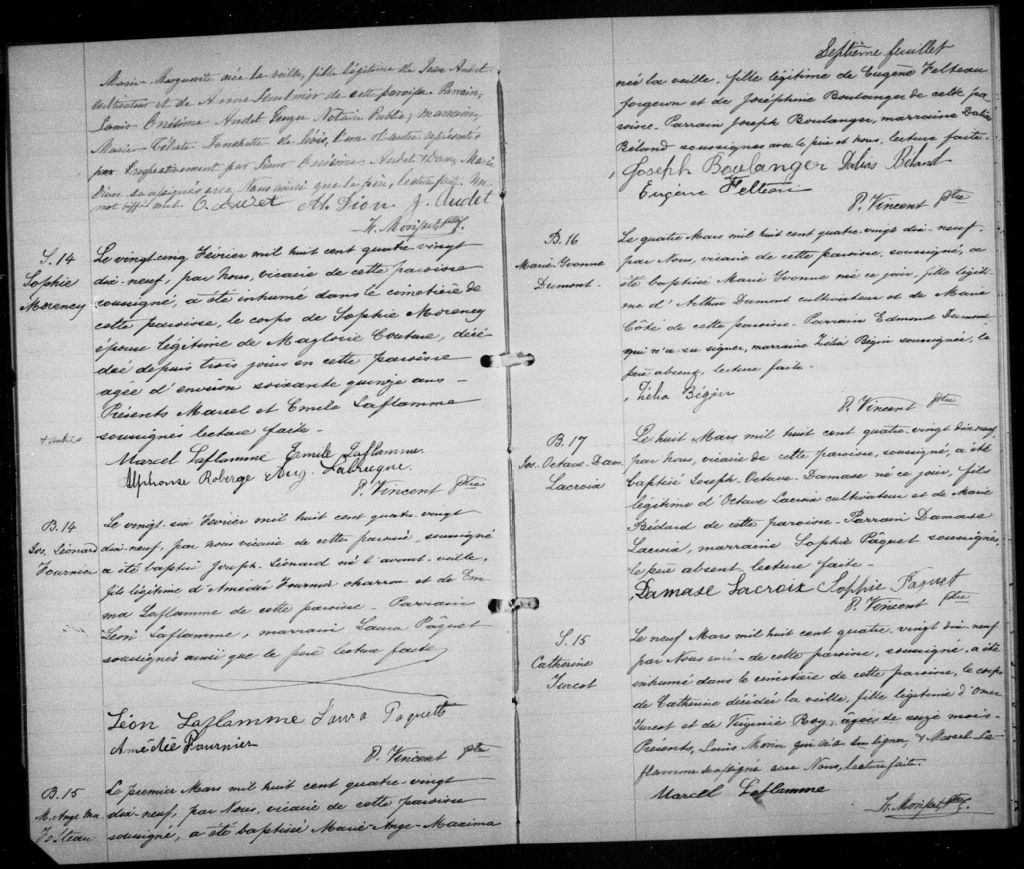 Marie-Marguerite née la veille, fille légitime de Jean Audet
cultivateur et de Anne de cette paroisse. Parrain,
Louis Onésime Audet Notaire Public; marraine,
Marie Fonchette de Lévis, l'un et l'autre représentés
respectivement par Onésime Audet & Dame Marie
Dion soussignés avec Nous ainsi que le père, lecture faite. Un
mot biffé nul. O. Audet M. Dion. J. Audet
S. 14
Sophie
Morency
Le vingt-cinq Février mil huit cent quatre-vingt
dix-neuf, par Nous, vicaire de cette paroisse
soussigné, a été inhumé dans le cimetière de
cette paroisse, le corps de Sophie Morency
épouse légitime de Magloire Couture, décé-
dée depuis trois jours en cette paroisse
agée d'environ soixante quinze ans -
Présents Marcel et Emile Laflamme
& autres
soussignés lecture faite -
Marcel Laflamme Ermile Laflamme.
Alphonse Roberge Aug. Labrugne.
P. Vincent ptre
B. 14
Jos. Léonard
Fournier
Le vingt-six Fevrier mil huit cent quatre-vingt
dix-neuf, par nous vicaire de cette paroisse, soussigné
a été baptisé Joseph-Léonard né l'avant-veille,
fils légitime d'Amédée Fournier charron et de Em-
ma Laflamme de cette paroisse - Parrain
Léon Laflamme, marraine Laura Pâquet
soussignés ainsi que le père lecture faite
Léon Laflamme Laura Paquette
Amédée Fournier
P. Vincent ptre
B. 15
M. Ange Ma
Felteau
Le premier Mars mil huit cent quatre-vingt
dix-neuf, par Nous, vicaire de cette paroisse
soussigné, a été baptisée Marie-Ange-Maxima
Septième feuillet
née la veille, fille légitime de Eugène Felteau
forgeron et de Joséphine Boulanger de cette pa-
roisse - Parrain Joseph Boulanger, marraine Dalias
Béland soussignés avec le père et nous, lecture faite -
Joseph Boulanger Dalias Béland
Eugène Felteau
P. Vincent ptre
B. 16
Marie-Yvonne
Dumont -
Le quatre Mars mil huit cent quatre-vingt dix-neuf
par Nous, vicaire de cette paroisse, soussigné, a
été baptisée Marie Yvonne née ce jour, fille légiti-
me d'Arthur Dumont cultivateur et de Marie
Côté de cette paroisse - Parrain Edmond Dumont
qui n'a su signer, marraine Zélia Bégin soussignée, le
père absent, lecture faite -
Zélia Bégin
P. Vincent ptre
B. 17
Jos. Octave-Dam.
Lacroix
Le huit Mars mil huit cent quatre-vingt dix-neuf,
par nous, vicaire de cette paroisse, soussigné, a été
baptisé Joseph-Octave-Damase né ce jour, fils
légitime d'Octave Lacroix cultivateur et de Marie
Bédard de cette paroisse - Parrain Damase
Lacroix, marraine Sophie Pâquet soussignés,
le père absent, lecture faite -
Damase Lacroix Sophie Paquett
P. Vincent ptre
S. 15
Catherine
Turcot
Le neuf Mars mil huit cent quatre-vingt dix-neuf
par Nous curé de cette paroisse, soussigné, a été
inhumé dans le cimetière de cette paroisse, le corps
de Catherine décédée la veille, fille légitime d'Omer
Turcot et de Virginie Roy, agée de seize mois -
Présents, Louis Morin qui n'a su signer, & Marcel La-
flamme soussigné avec Nous, lecture faite.
Marcel Laflamme